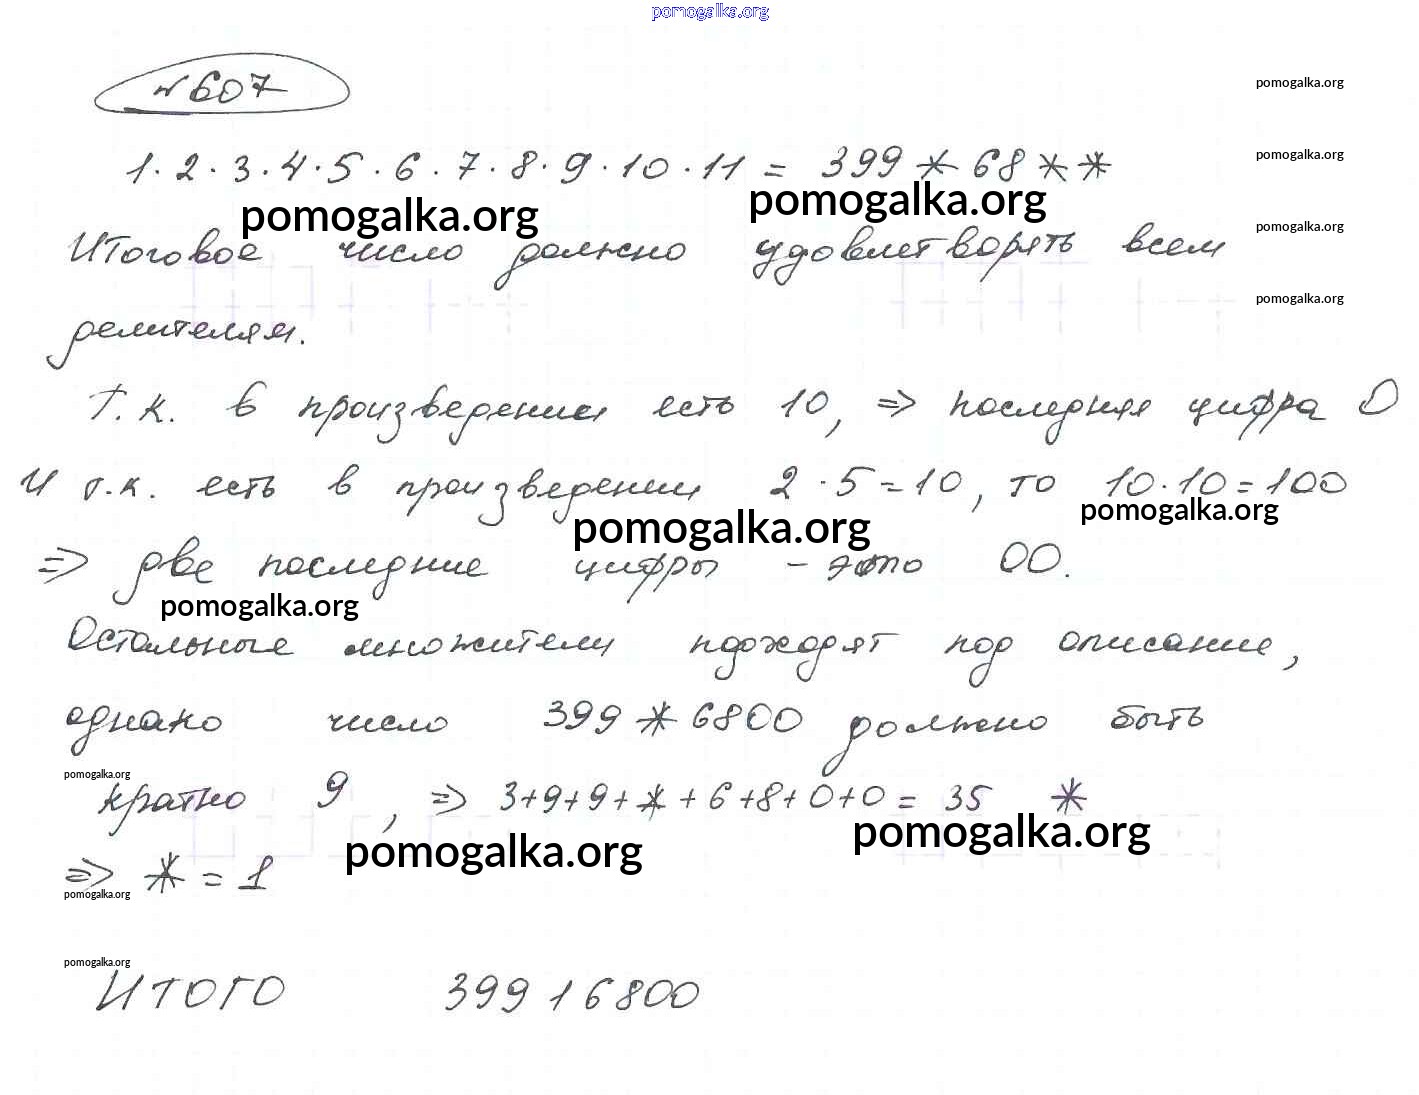 pomogalka.org
№607
pomogalka.org
1·2·3·4·5·6·7·8·9·10·11 = 399*68**
pomogalka.org
pomogalka.org pomogalka.org
Итоговое число должно удовлетворять всем
pomogalka.org
pomogalka.org
делителям.
Т.к. в произведении есть 10, => последняя цифра 0
И т.к. есть в произведении 2·5=10, то 10·10=100
pomogalka.org pomogalka.org
=> две последние цифры - это 00.
pomogalka.org
Остальные множители подходят под описание,
однако число 399*6800 должно быть
pomogalka.org
кратно 9, => 3+9+9+*+6+8+0+0= 35 *
pomogalka.org pomogalka.org
=> * = 1
pomogalka.org
pomogalka.org
ИТОГО 39916800